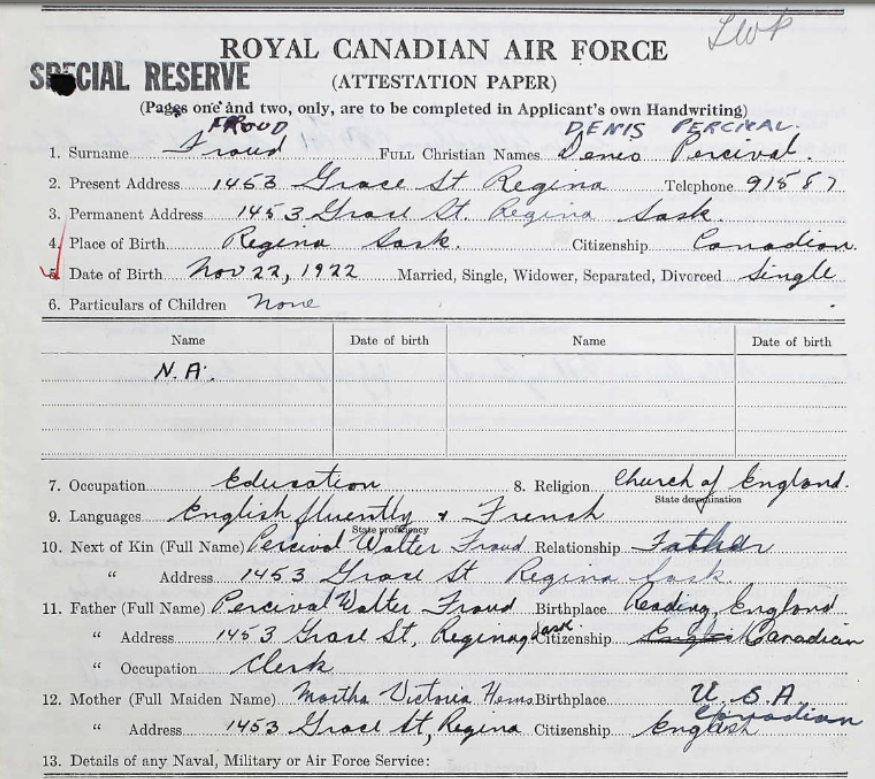 ROYAL CANADIAN AIR FORCE
SPECIAL RESERVE
(ATTESTATION PAPER)
(Pages one and two, only, are to be completed in Applicant's own Handwriting)
FROUD DENIS PERCIVAL.
1. Surname Froud FULL Christian Names Denis Percival.
2. Present Address 1453 Grace St Regina Telephone 91587
3. Permanent Address 1453 Grace St. Regina Sask.
4. Place of Birth Regina Sask. Citizenship Canadian.
5. Date of Birth Nov 22, 1922 Married, Single, Widower, Separated, Divorced Single
6. Particulars of Children None
Name Date of birth Name Date of birth
N.A.
7. Occupation Education 8. Religion Church of England.
State denomination
9. Languages English fluently & French
State proficiency
10. Next of Kin (Full Name) Percival Walter Froud Relationship Father
" Address 1453 Grace St Regina Sask.
11. Father (Full Name) Percival Walter Froud Birthplace Reading, England
" Address 1453 Grace St, Regina Sask. Citizenship English Canadian
" Occupation Clerk
12. Mother (Full Maiden Name) Martha Victoria Hems Birthplace U.S.A.
Canadian
" Address 1453 Grace St, Regina Citizenship English
13. Details of any Naval, Military or Air Force Service: